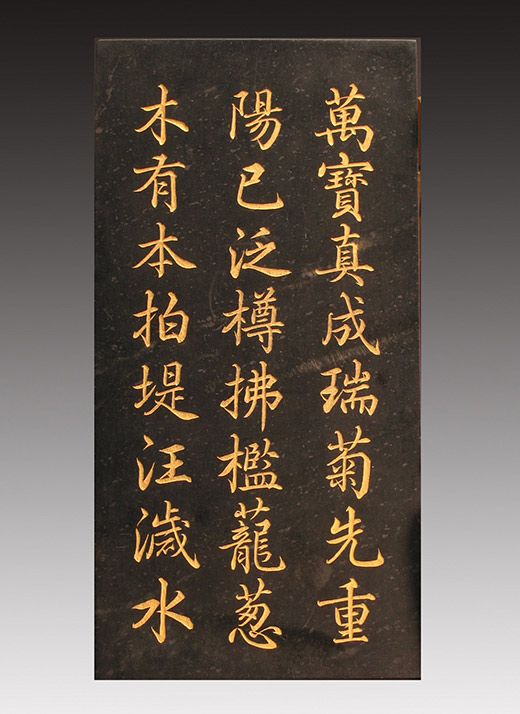 萬寶真成瑞菊先重
陽已泛樽拂檻蘢蔥
木有本拍堤汪濊水